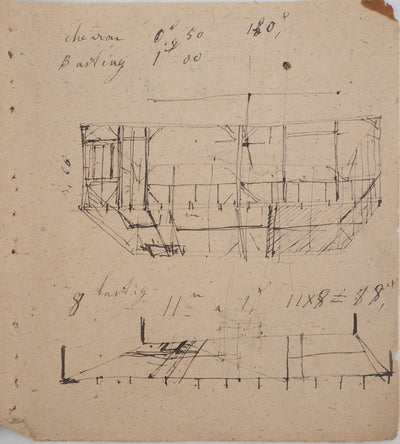 chevron 0,f 50 180,f
Basting 1,f 00
3,60
8 basting 11 m a 1,f 11x8 = 88,f